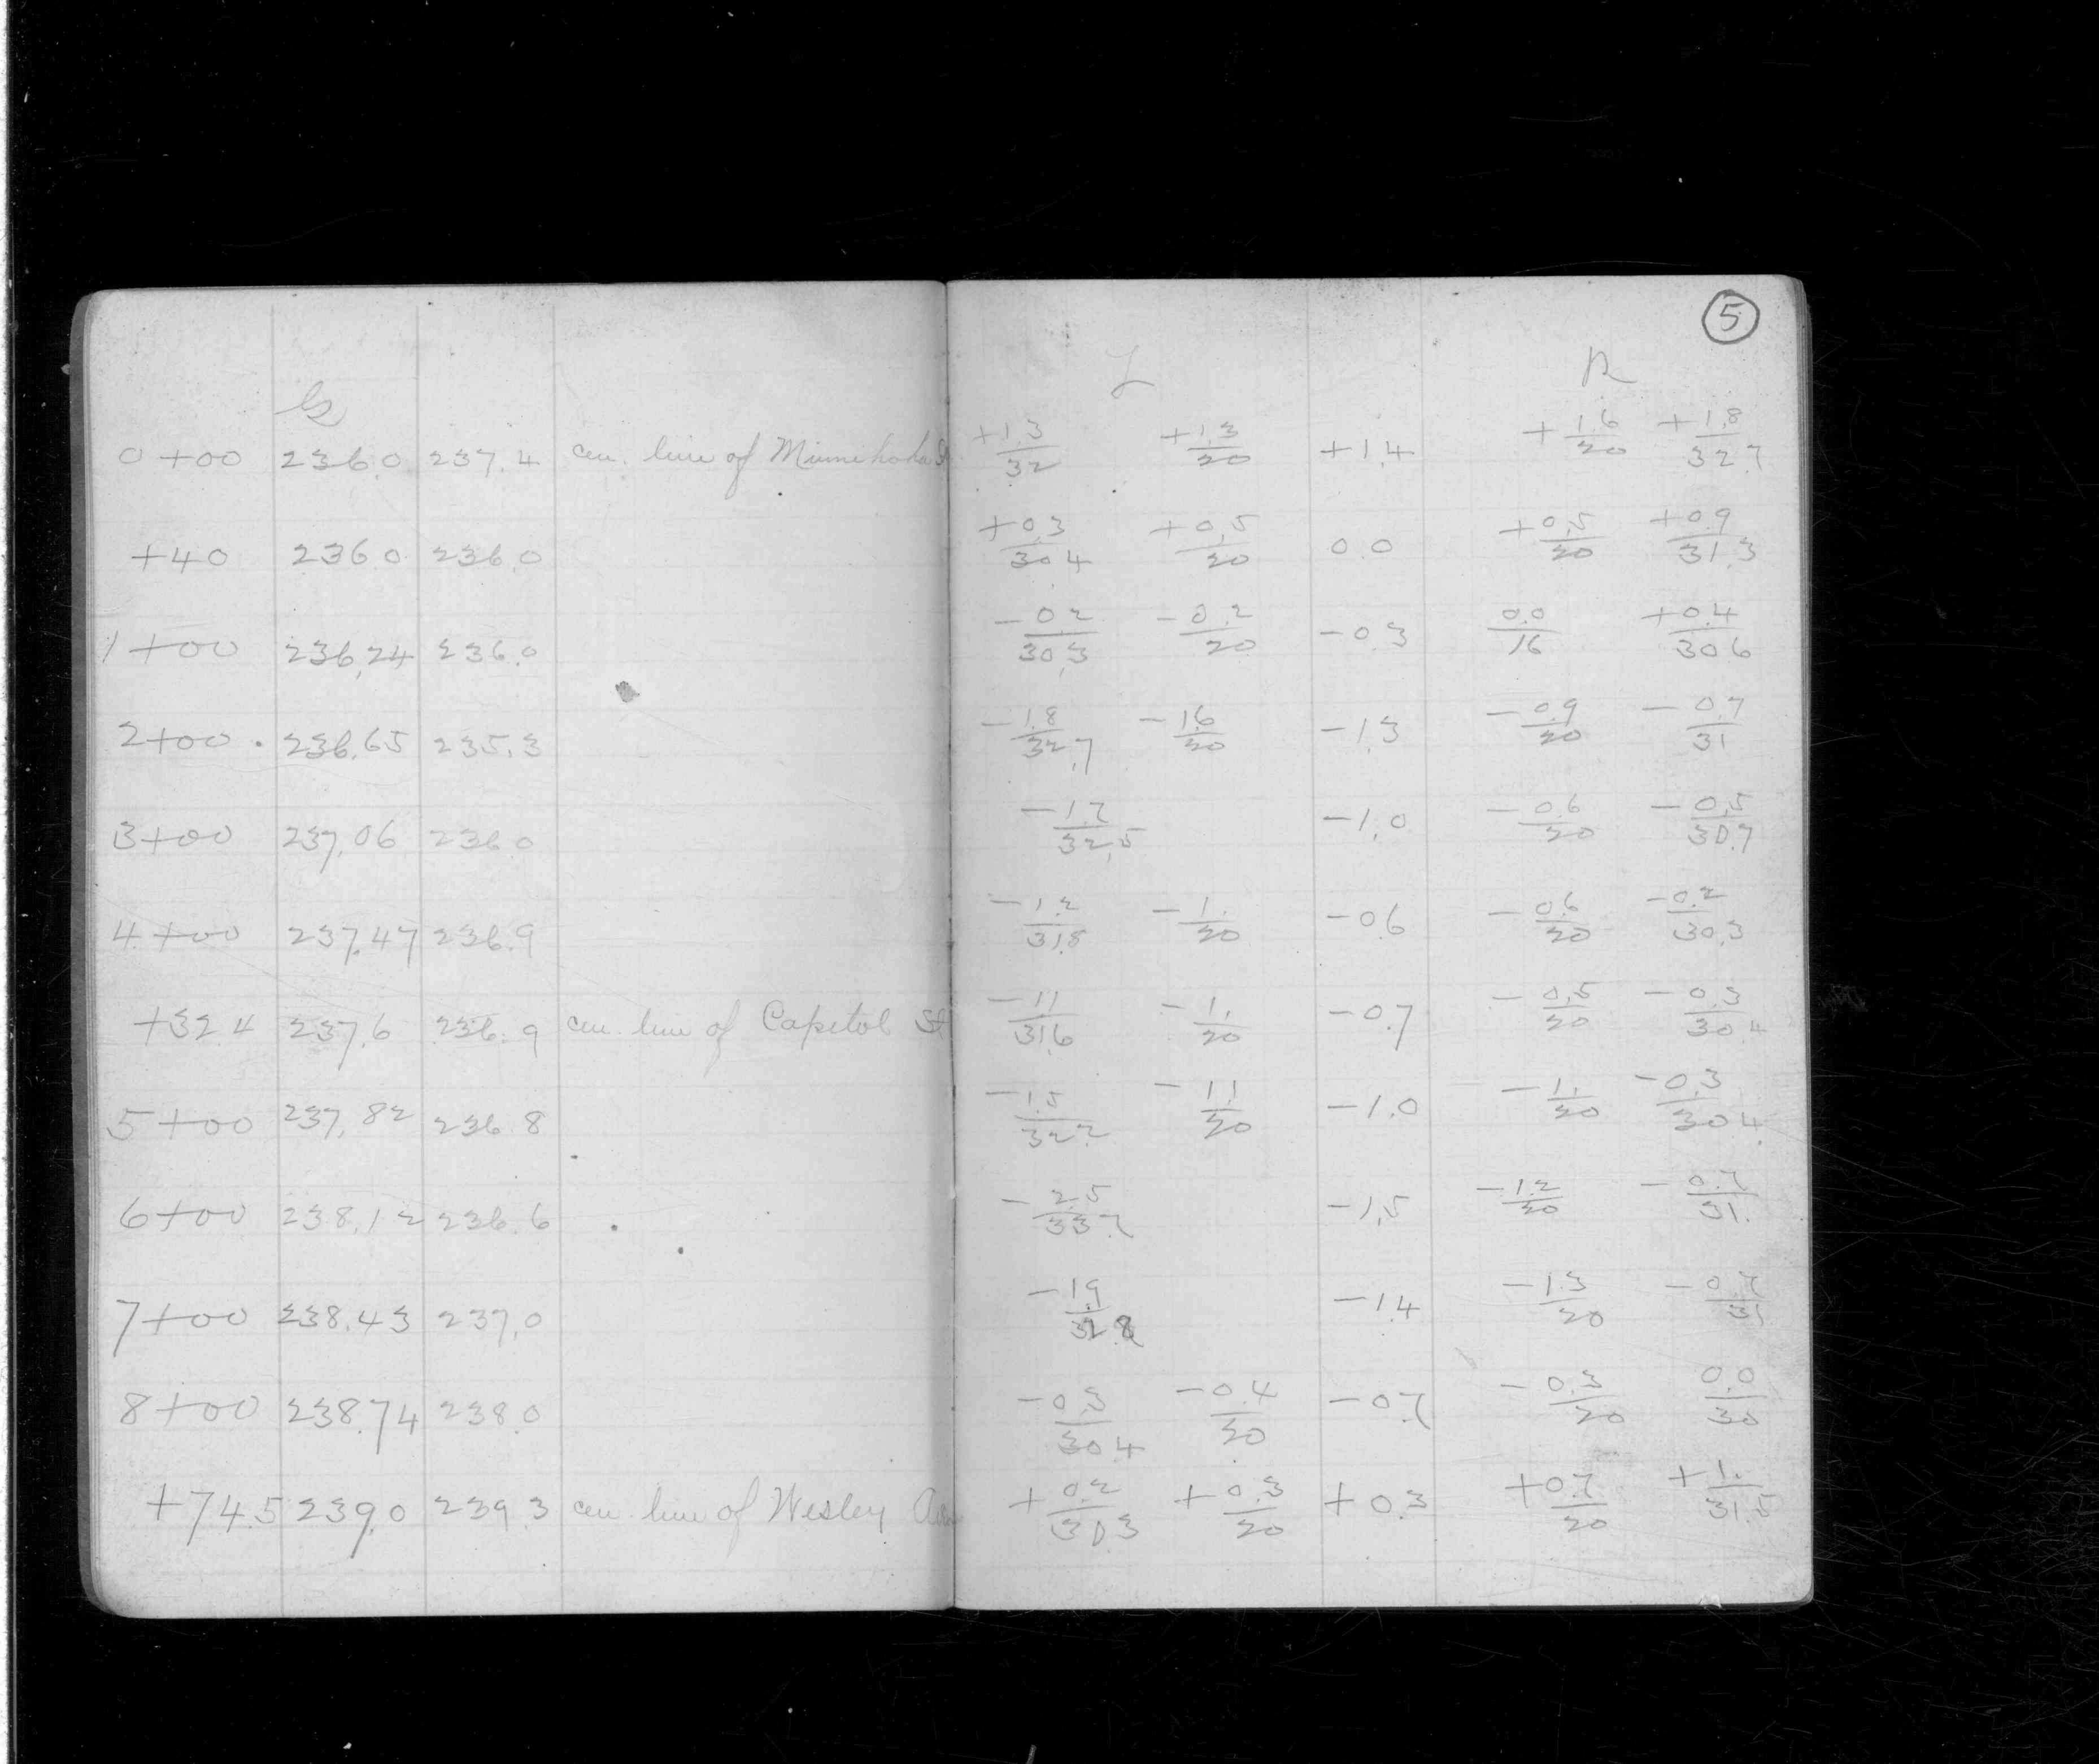 5
G L R
0+00 236.0 237.4 cen. line of Minnehaha St +1.3/32 +1.3/20 +1.4 +1.6/20 +1.8/32.7
+40 236.0 236.0 +0.3/30.4 +0.5/20 0.0 +0.5/20 +0.9/31.3
1+00 236.24 236.0 -0.2/30.3 -0.2/20 -0.3 0.0/16 +0.4/30.6
2+00 236.65 235.3 -1.8/32.7 -1.6/20 -1.3 -0.9/20 -0.7/31
3+00 237.06 236.0 -1.7/32.5 -1.0 -0.6/20 -0.5/30.7
4+00 237.47 236.9 -1.2/31.8 -1./20 -0.6 -0.6/20 -0.2/30.3
+32.4 237.6 236.9 cen. line of Capitol St -1.1/31.6 -1./20 -0.7 -0.5/20 -0.3/30.4
5+00 237.82 236.8 -1.5/32.2 -1.1/20 -1.0 -1./20 -0.3/30.4
6+00 238.12 236.6 -2.5/33.7 -1.5 -1.2/20 -0.7/31.
7+00 238.43 237.0 -1.9/32.8 -1.4 -1.3/20 -0.7/31
8+00 238.74 238.0 -0.3/30.4 -0.4/20 -0.7 -0.3/20 0.0/30
+74.5 239.0 239.3 cen. line of Wesley Ave +0.2/30.3 +0.3/20 +0.3 +0.7/20 +1./31.5